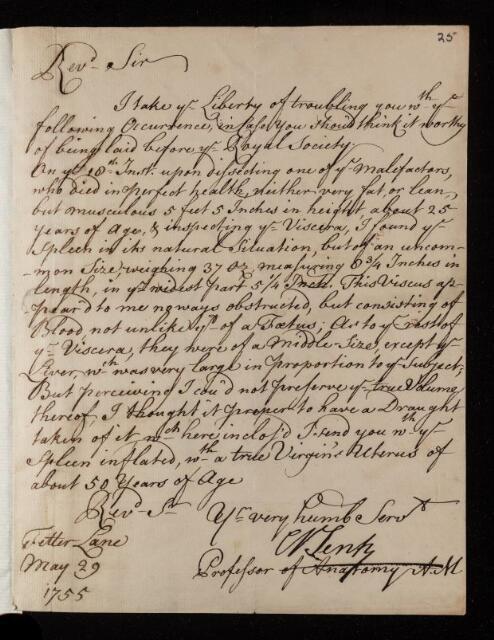 25
Revd. Sir
I take ye. Liberty of troubling you wth. ye.
following Occurrence, in Case You shou'd think it worthy
of being laid before ye. Royal Society.
On ye. 10th. Inst. upon dissecting one of ye. Malefactors,
who died in perfect health, neither very fat, or lean,
but musculous 5 feet 5 Inches in height, about 25
years of Age, & inspecting ye. Viscera, I found ye.
Spleen in its natural Situation, but of an uncom-
mon Size, weighing 37 Oz. measuring 8 3/4 Inches in
length, in ye. widest part 5 1/4 Inch. This Viscus ap-
pear'd to me no ways obstructed, but consisting of
Blood not unlike yt. of a Fœtus; As to ye. rest of
ye. Viscera, they were of a Middle Size, except ye.
Liver, wch. was very large in proportion to ye. Subject;
But perceiving I cou'd not preserve ye. true Volume
thereof, I thought it proper to have a Draught
taken of it, wch. here inclos'd I send you wth. ye.
Spleen inflated, wth. a true Virgin's Uterus of
about 50 Years of Age
Revd. Sr.
Yr. very humb Servt.
Fetter Lane
N Jenty
May 29
Professor of Anatomy A M
1755